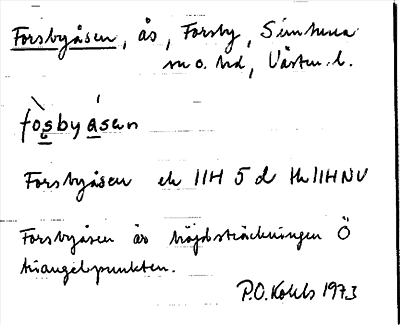 Forsbyåsen, ås, Forsby, Simtuna
sn o. hd, Västm. l.
fos̱by a̱sen
Forsbyåsen ek 11H 5 d 11H NV
Forsbyåsen är höjdsträckningen Ö
triangelpunkten.
P.O. 1973